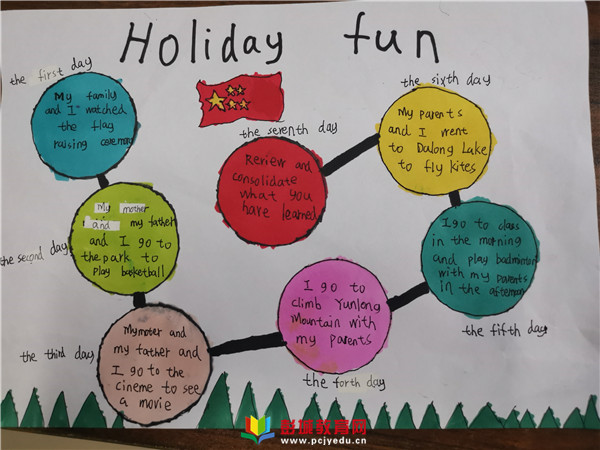 Holiday fun
the first day
My family
and I watched
the flag
raising ceremony
the second day
My mother
and my father
and I go to
the park to
play basketball
the third day
My moter and
my father and
I go to the
cineme to see
a movie
the forth day
I go to
climb Yunlong
Mountain with
my parents
the fifth day
I go to class
in the morning
and play badminton
with my parents
in the afternoon
the sixth day
My parents
and I went
to Dalong Lake
to fly kites
the serenth day
Review and
consolidate
what you
have learned
彭城教育网
www.pcjyedu.cn